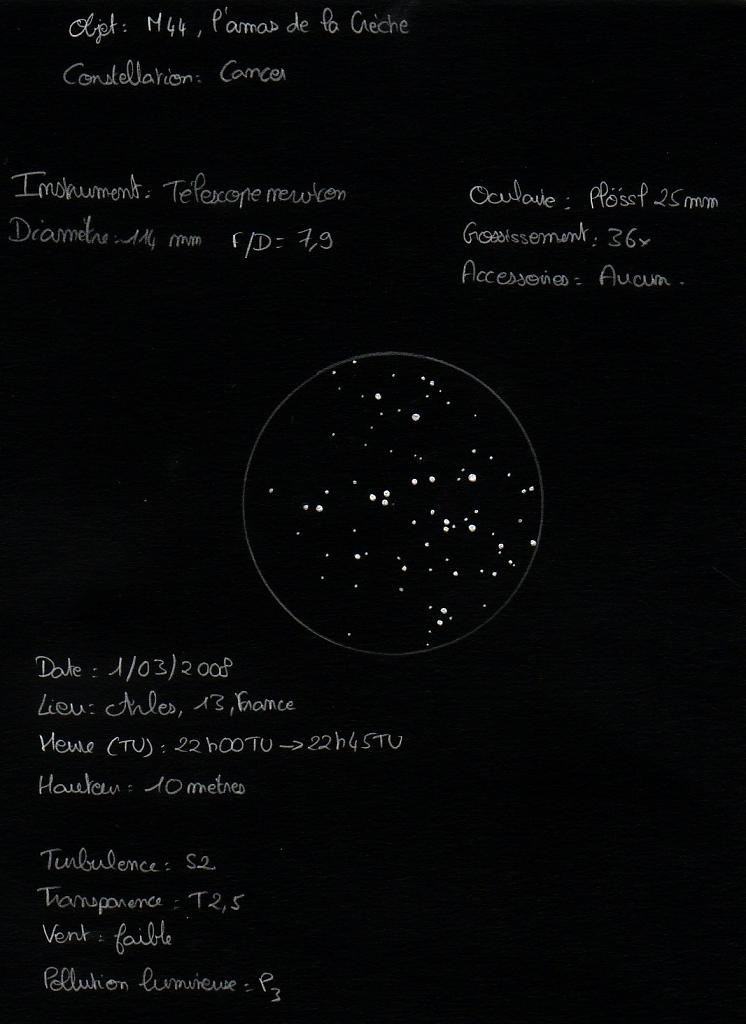 Objet : M44, l'amas de la Crèche
Constellation : Cancer
Instrument : Télescope newton
Diamètre : 114 mm F/D = 7,9
Oculaire : Plössl 25 mm
Grossissement : 36x
Accessoires = Aucun.
Date : 1/03/2008
Lieu : Arles, 13, France
Heure (TU) : 22h00TU → 22h45TU
Hauteur : 10 mètres
Turbulence : S2
Transparence : T2,5
Vent : faible
Pollution lumineuse = P3